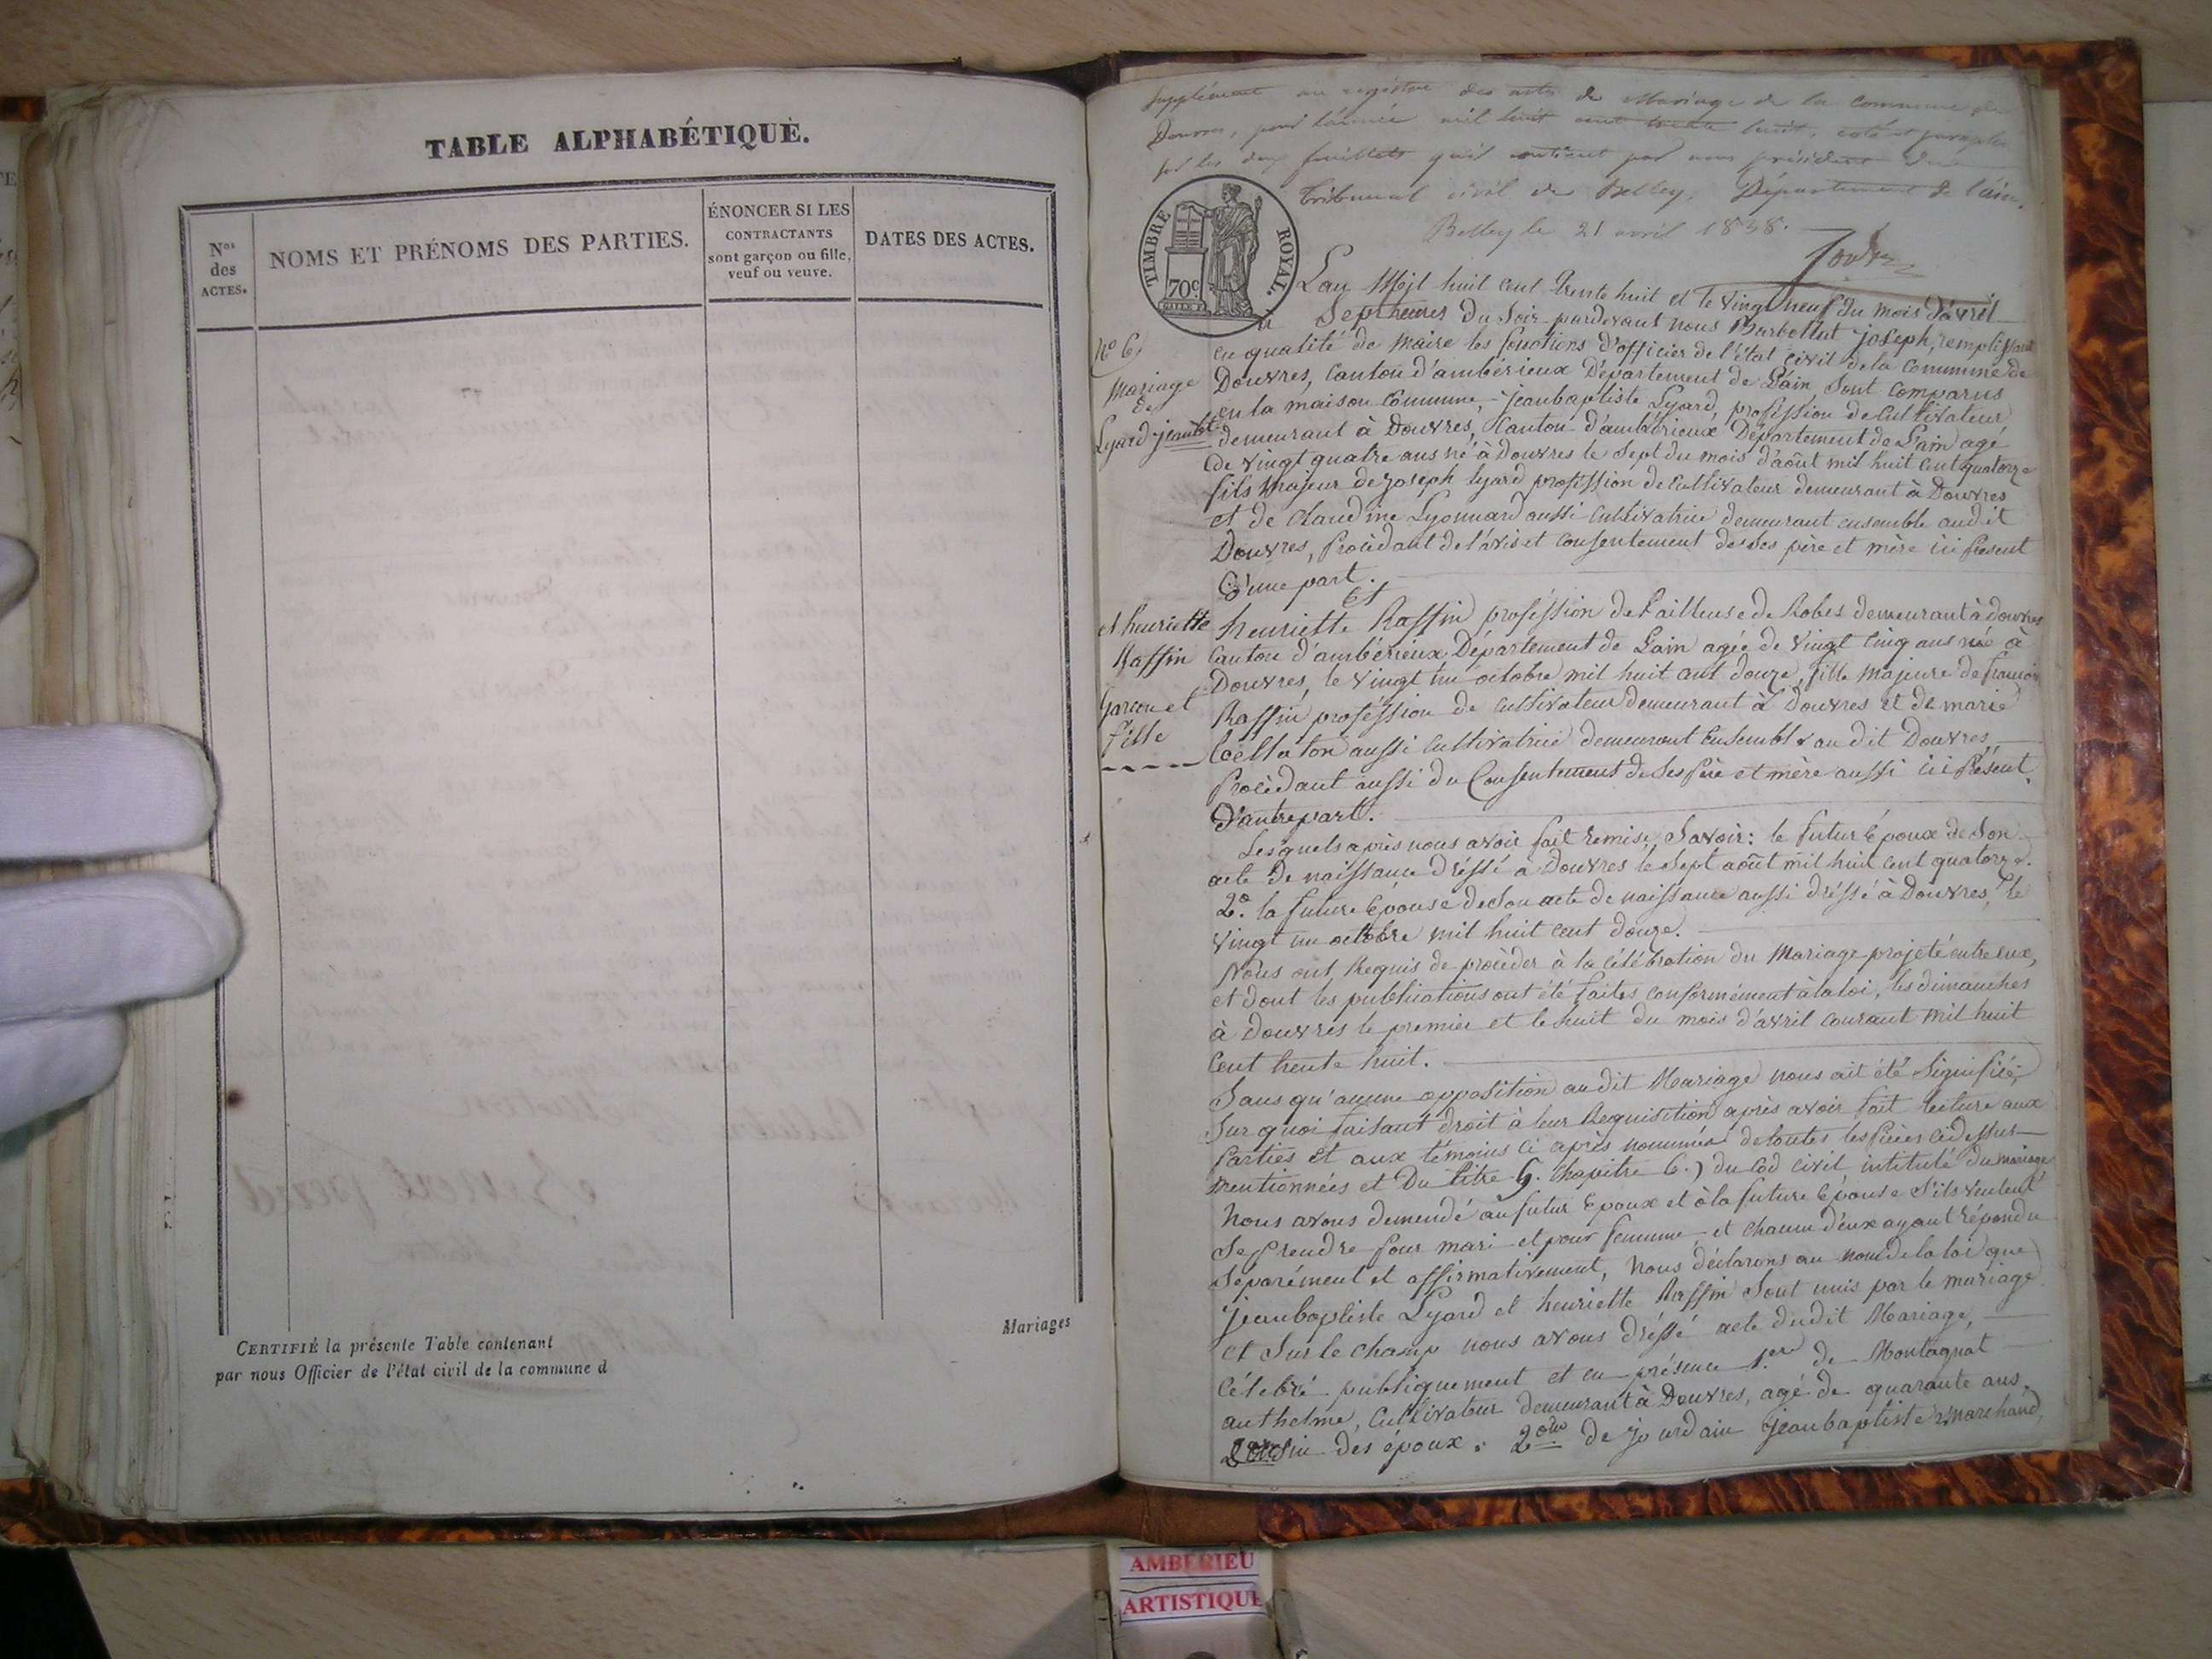 TABLE ALPHABÉTIQUE.
Nos des ACTES.
NOMS ET PRÉNOMS DES PARTIES.
ÉNONCER SI LES
CONTRACTANTS
sont garçon ou fille,
veuf ou veuve.
DATES DES ACTES.
CERTIFIÉ la présente Table contenant
par nous Officier de l'état civil de la commune d
Mariages
Supplément au registre des actes de Mariage de la Commune de
Douvres, pour l'année mil huit cent trente huit, coté et paraphé
sur les deux feuillets qu'il contient par nous président du
Tribunal civil de Belley, Département de l'ain.
Belley le 21 avril 1838.
TIMBRE ROYAL.
70c
L'an Mil huit cent Trente huit et le vingt neuf du mois d'avril
à Sept heures du Soir pardevant nous Barbollat joseph, remplissant
en qualité de Maire les fonctions d'officier de l'état civil de la Commune de
Douvres, Canton d'ambérieux Département de L'ain Sont Comparus
en la maison Commune, jeanbaptiste Lyard, proféssion de Cultivateur
demeurant à Douvres, Canton d'ambérieux Département de L'ain agé
de vingt quatre ans né à Douvres le Sept du mois d'août mil huit cent quatorze
fils Majeur de joseph lyard proféssion de Cultivateur demeurant à Douvres
et de Claudine Lyonnard aussi Cultivatrice demeurant ensemble audit
Douvres, Procédant de l'avis et Consentement de ses père et mère ici Présent
D'une part.
Et
No 6.
Mariage
de
Lyard jean bte
et henriette
Raffin
Garçon et
fille
henriette Raffin proféssion de Tailleuse de Robes demeurant à douvres
Canton d'ambérieux Département de L'ain agée de vingt cinq ans née à
Douvres, le vingt un octobre mil huit cent douze, fille Majeure de françois
Raffin proféssion de Cultivateur demeurant à Douvres et de marie
aussi Cultivatrice demeurant Ensemble au dit Douvres,
Procédant aussi du Consentement de Ses Père et mère aussi ici Présent.
D'autre part.
Lesquels après nous avoir fait Remise, Savoir: le futur Epoux de Son
acte de naissance dréssé à Douvres le Sept août mil huit cent quatorze.
2o. la future Epouse de Son acte de naissance aussi dréssé à Douvres, le
vingt un octobre mil huit cent douze.
Nous ont Requis de procéder à la Célébration du Mariage projeté entre eux,
et dont les publications ont été faites conformément à la loi, les dimanches
à Douvres le premier et le huit du mois d'avril Courant mil huit
Cent trente huit.
Sans qu'aucune opposition au dit Mariage nous ait été Signifiée,
Sur quoi faisant droit à leur Requisition après avoir fait lecture aux
Parties et aux témoins ci après nommés de toutes les Pièces ci dessus
mentionnées et Du titre 5. Chapitre 6.) du Cod Civil intitulé du mariage
Nous avons demendé au futur Epoux et à la future Epouse S'ils veulent
Se Prendre Pour mari et pour femme et chacun d'eux ayant répondu
Séparément et affirmativement, Nous déclarons au nom de la loi que
jeanbaptiste Lyard et henriette Raffin Sont unis par le mariage
et Sur le champ nous avons dréssé acte du dit Mariage,
Célébré publiquement et en présence 1.er de Montagnat
anthelme, Cultivateur demeurant à Douvres, agé de quarante ans.
Cousin des époux. 2eme de jourdain jeanbaptiste marchand,
AMBERIEU
ARTISTIQUE